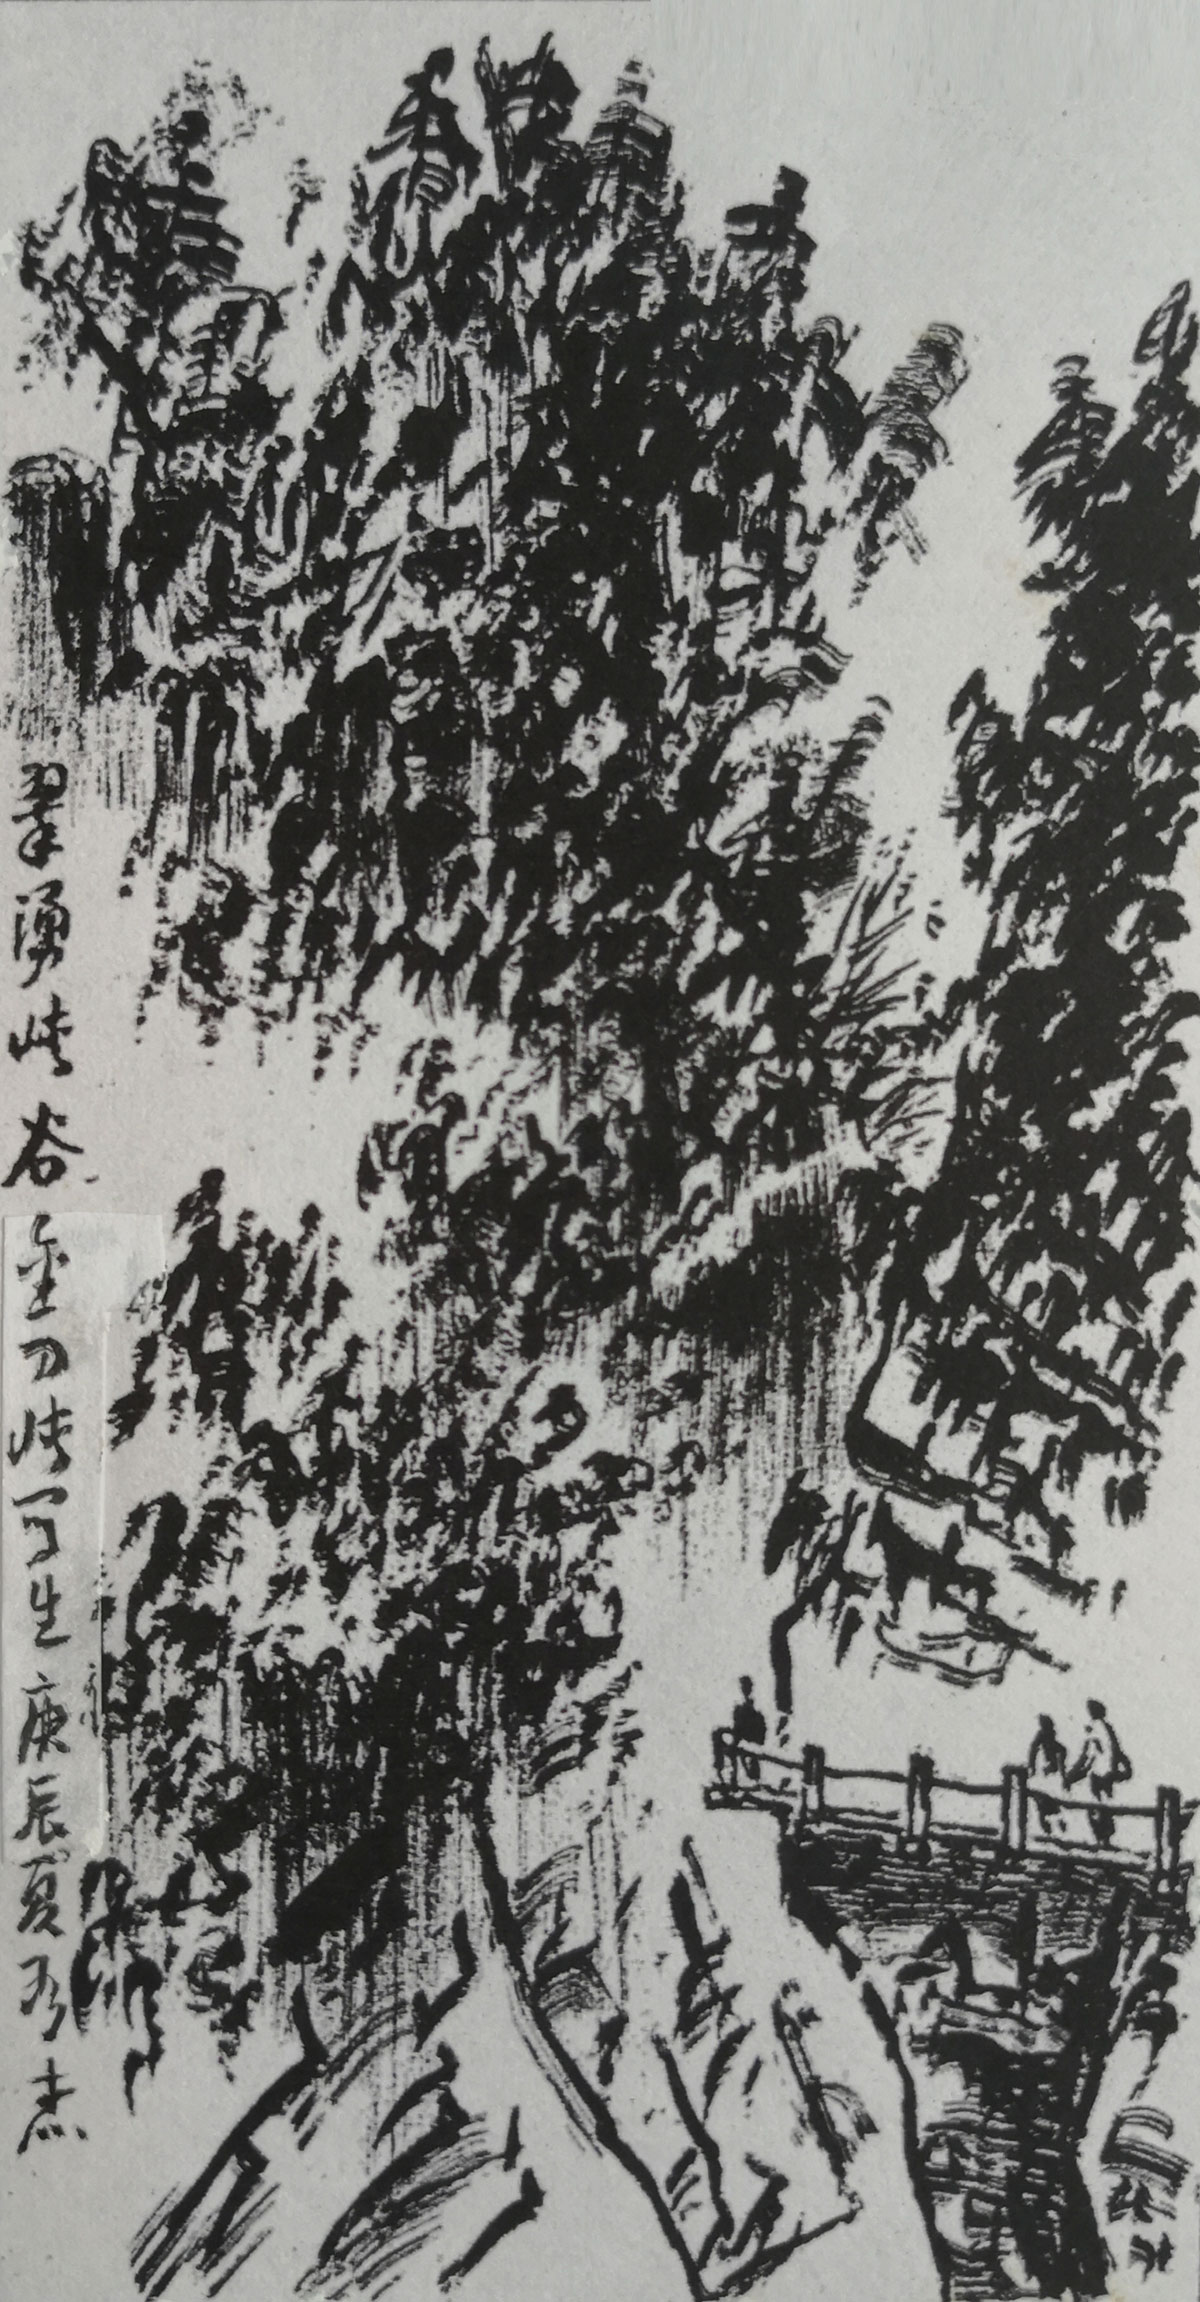 翠涌峡谷
金刀峡写生庚辰夏万杰